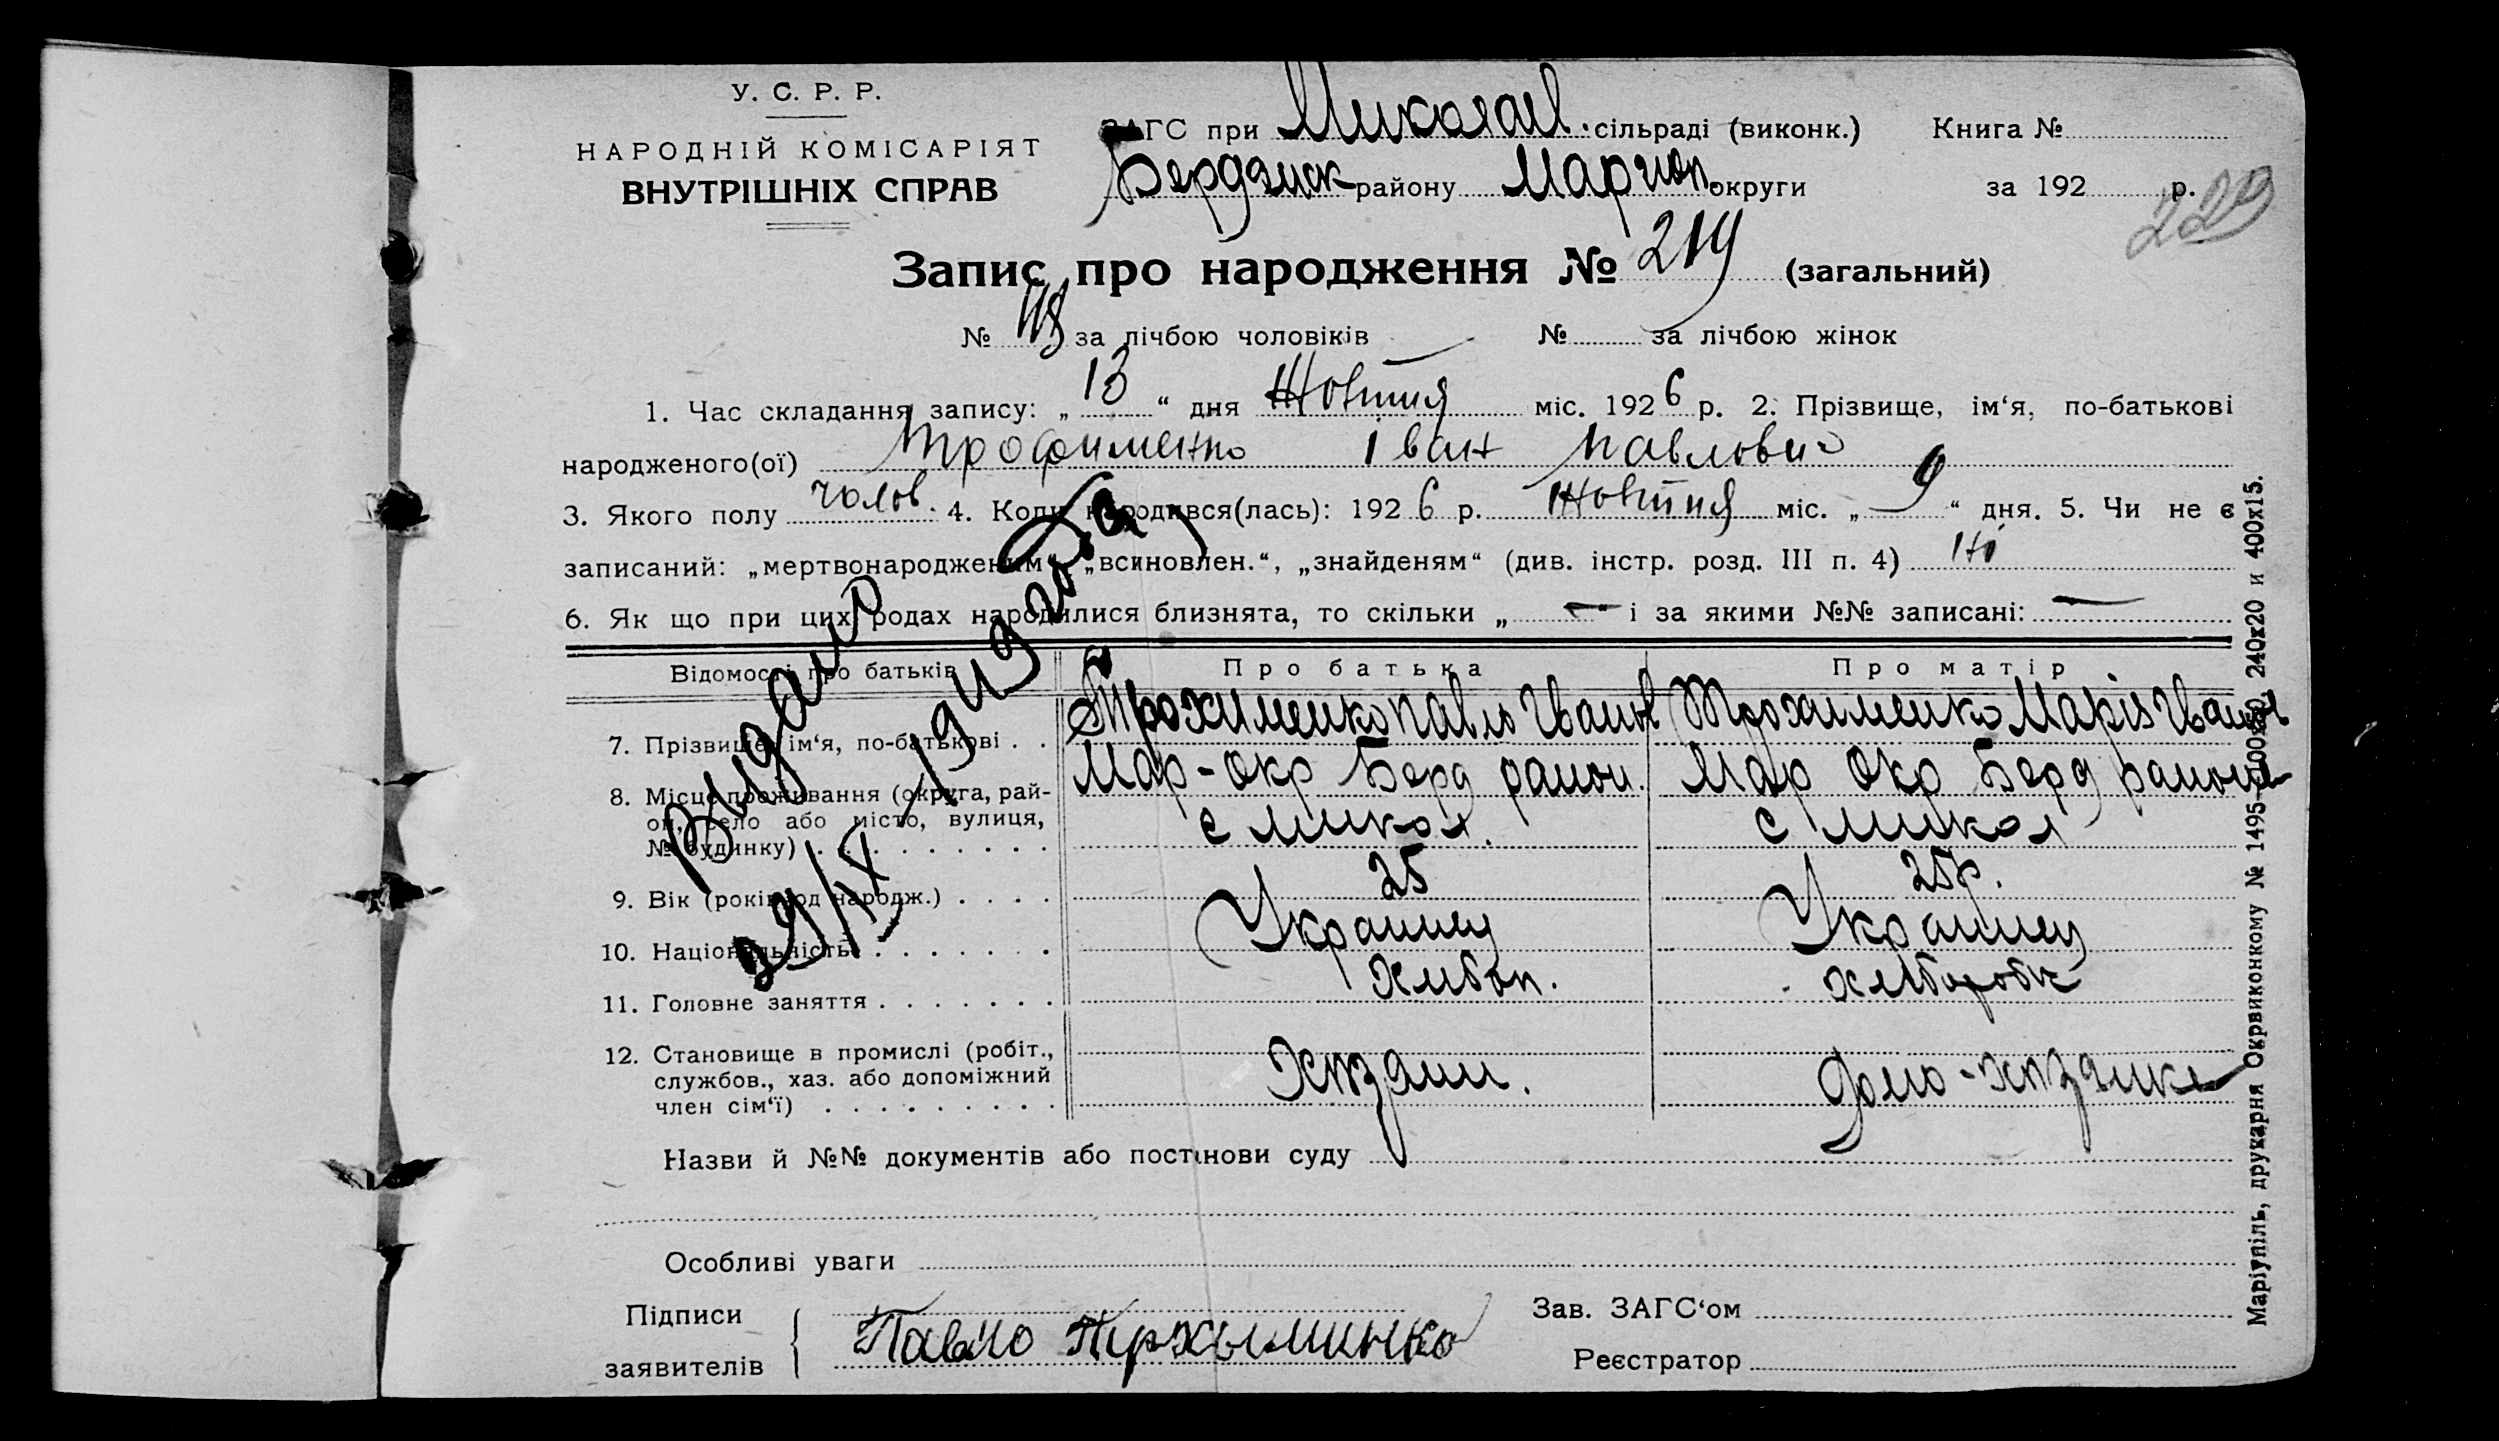 У. С. Р. Р.
НАРОДНІЙ КОМІСАРІЯТ
ВНУТРІШНІХ СПРАВ
ЗАГС при Миколаев. сільраді (виконк.) Книга №
Бердянск району Маріюп. округи за 192 р.
229
Запис про народження № 219 (загальний)
№ за лічбою чоловіків № за лічбою жінок
1. Час складання запису: „ 13 “ дня Жовтня міс. 1926 р. 2. Прізвище, ім‘я, по-батькові
народженого(ої) Трофименко Іван Павлович
3. Якого полу чолов. 4. Коли народився(лась): 1926 р. Жовтня міс. „ 9 “ дня. 5. Чи не є
записаний: „мертвонародженим“, „всиновлен.“, „знайденям“ (див. інстр. розд. III п. 4) Ні
6. Як що при цих родах народилися близнята, то скільки „ — “ і за якими №№ записані: —
Відомості про батьків Про батька Про матір
7. Прізвище, ім‘я, по-батькові . . Трохименко Павло Іванов Трохименко Марія Іванов
8. Місце проживання (округа, рай- Мар-окр Берд район. Мар окр Берд района
он, село або місто, вулиця, с Микол. с Микол
№ будинку) . . . . . . . . . .
9. Вік (років од народж.) . . . . 25 25р.
10. Національність . . . . . . . Украинец Украинец
11. Головне заняття . . . . . . . Хлібор. хлібороб
12. Становище в промислі (робіт., 
службов., хаз. або допоміжний Хазяин. домо-хазяика
член сім‘ї) . . . . . . . . .
Видано
29/IX
Назви й №№ документів або постанови суду
Особливі уваги
Підписи Зав. ЗАГС‘ом
заявителів Павло Трхыминко Реєстратор
Маріупіль, друкарня Окрвиконкому № 1495—100х20, 240х20 и 400х15.